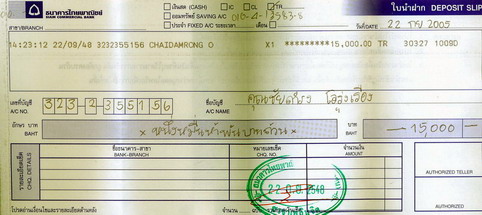 ธนาคารไทยพาณิชย์
SIAM COMMERCIAL BANK
เงินสด (CASH) IC CL TR
ออมทรัพย์ SAVING A/C
ประจำ FIXED A/C ระยะเวลา เดือน
ใบนำฝาก DEPOSIT SLIP
สาขา/BRANCH
วันที่/DATE 22 กย 2005
14:23:12 22/09/48 3232355156 CHAIDAMRONG O X1 *********15,000.00 TR 30327 1009D
เลขที่บัญชี A/C NO. 323-2-355156
ชื่อบัญชี A/C NAME
อักษร บาท BAHT × หนึ่งหมื่นห้าพันบาทถ้วน × บาท BAHT -15,000-
รายละเอียดเช็ค CHQ. DETAILS
ชื่อธนาคาร-สาขา BANK-BRANCH
หมายเลขเช็ค CHQ. NO.
จำนวนเงิน AMOUNT
AUTHORIZED TELLER
AUTHORIZED
โปรดอ่านเงื่อนไขและรายละเอียดด้านหลัง
จำนวน